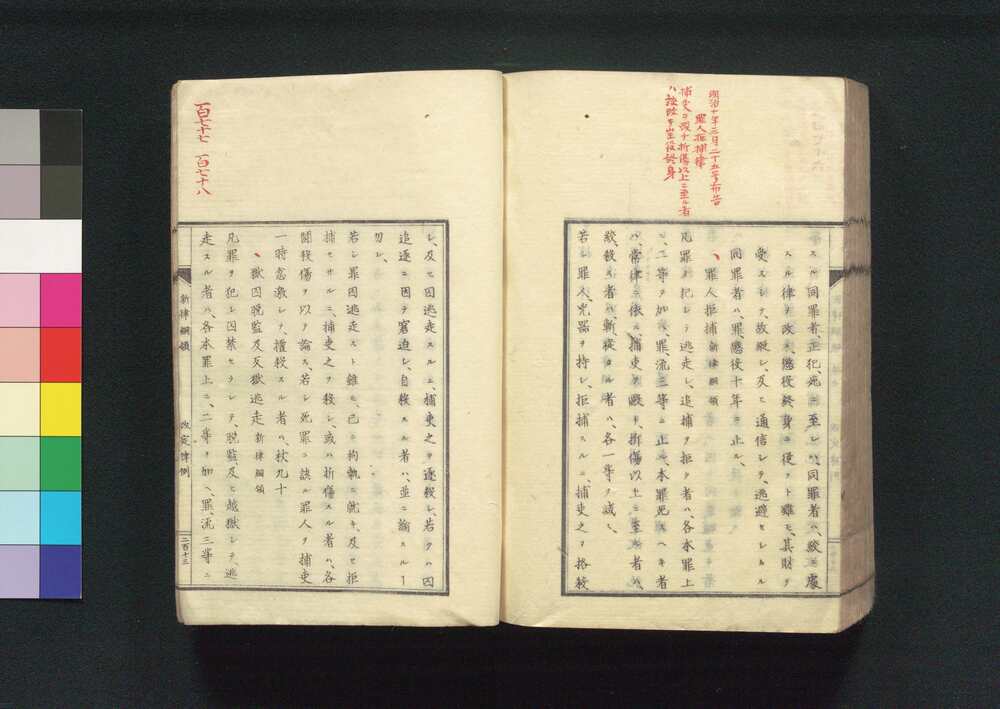 明治十年三月二十五号布告
罪人拒捕律
捕吏ヲ殴チ折傷以上ニ至ル者
ハ 改テ 懲役終身
スル同罪者、正犯、死ニ至レハ、同罪者ハ、絞ニ處
スル律ヲ改メ、懲役終身ニ従フト雖モ、其財ヲ
受スシテ、故縦シ、及ヒ通信シテ、逃避セシムル
同罪者ハ、罪、懲役十年ニ止ル、
罪人拒捕 新律綱領
凡罪ヲ犯シテ逃走シ、追捕ヲ拒ク者ハ、各本罪上
ニ、二等ヲ加ヘ、罪、流三等ニ止ル、本罪死スヘキ者
ハ、常律ニ依ル、捕吏ヲ殴チ、折傷以上ニ至ル者ハ、
絞、殺ス者ハ、斬、従タル者ハ、各一等ヲ減ス、
若シ罪人、兇器ヲ持シ、拒捕スルニ、捕吏之ヲ格殺
シ、及ヒ囚逃走スルニ、捕吏之ヲ逐殺シ、若クハ囚
追逐ニ因テ窘迫シ、自殺スル者ハ、並ニ論スルヿ
勿レ、
若シ罪囚逃走スト雖モ、已ニ拘執ニ就キ、及ヒ拒
捕セサルニ、捕吏之ヲ殺シ、或ハ折傷スル者ハ、各
鬪殺傷ヲ以テ論ス、若シ死罪ニ該ル罪人ヲ捕吏
一時忿激シテ、擅殺スル者ハ、杖九十
獄囚脱監及反獄逃走 新律綱領
凡罪ヲ犯シ囚禁セラレテ、脱監、及ヒ越獄シテ、逃
走スル者ハ、各本罪上ニ、二等ヲ加ヘ、罪、流三等ニ
新律綱領 改定律例 二百十三
百七十七 百七十八